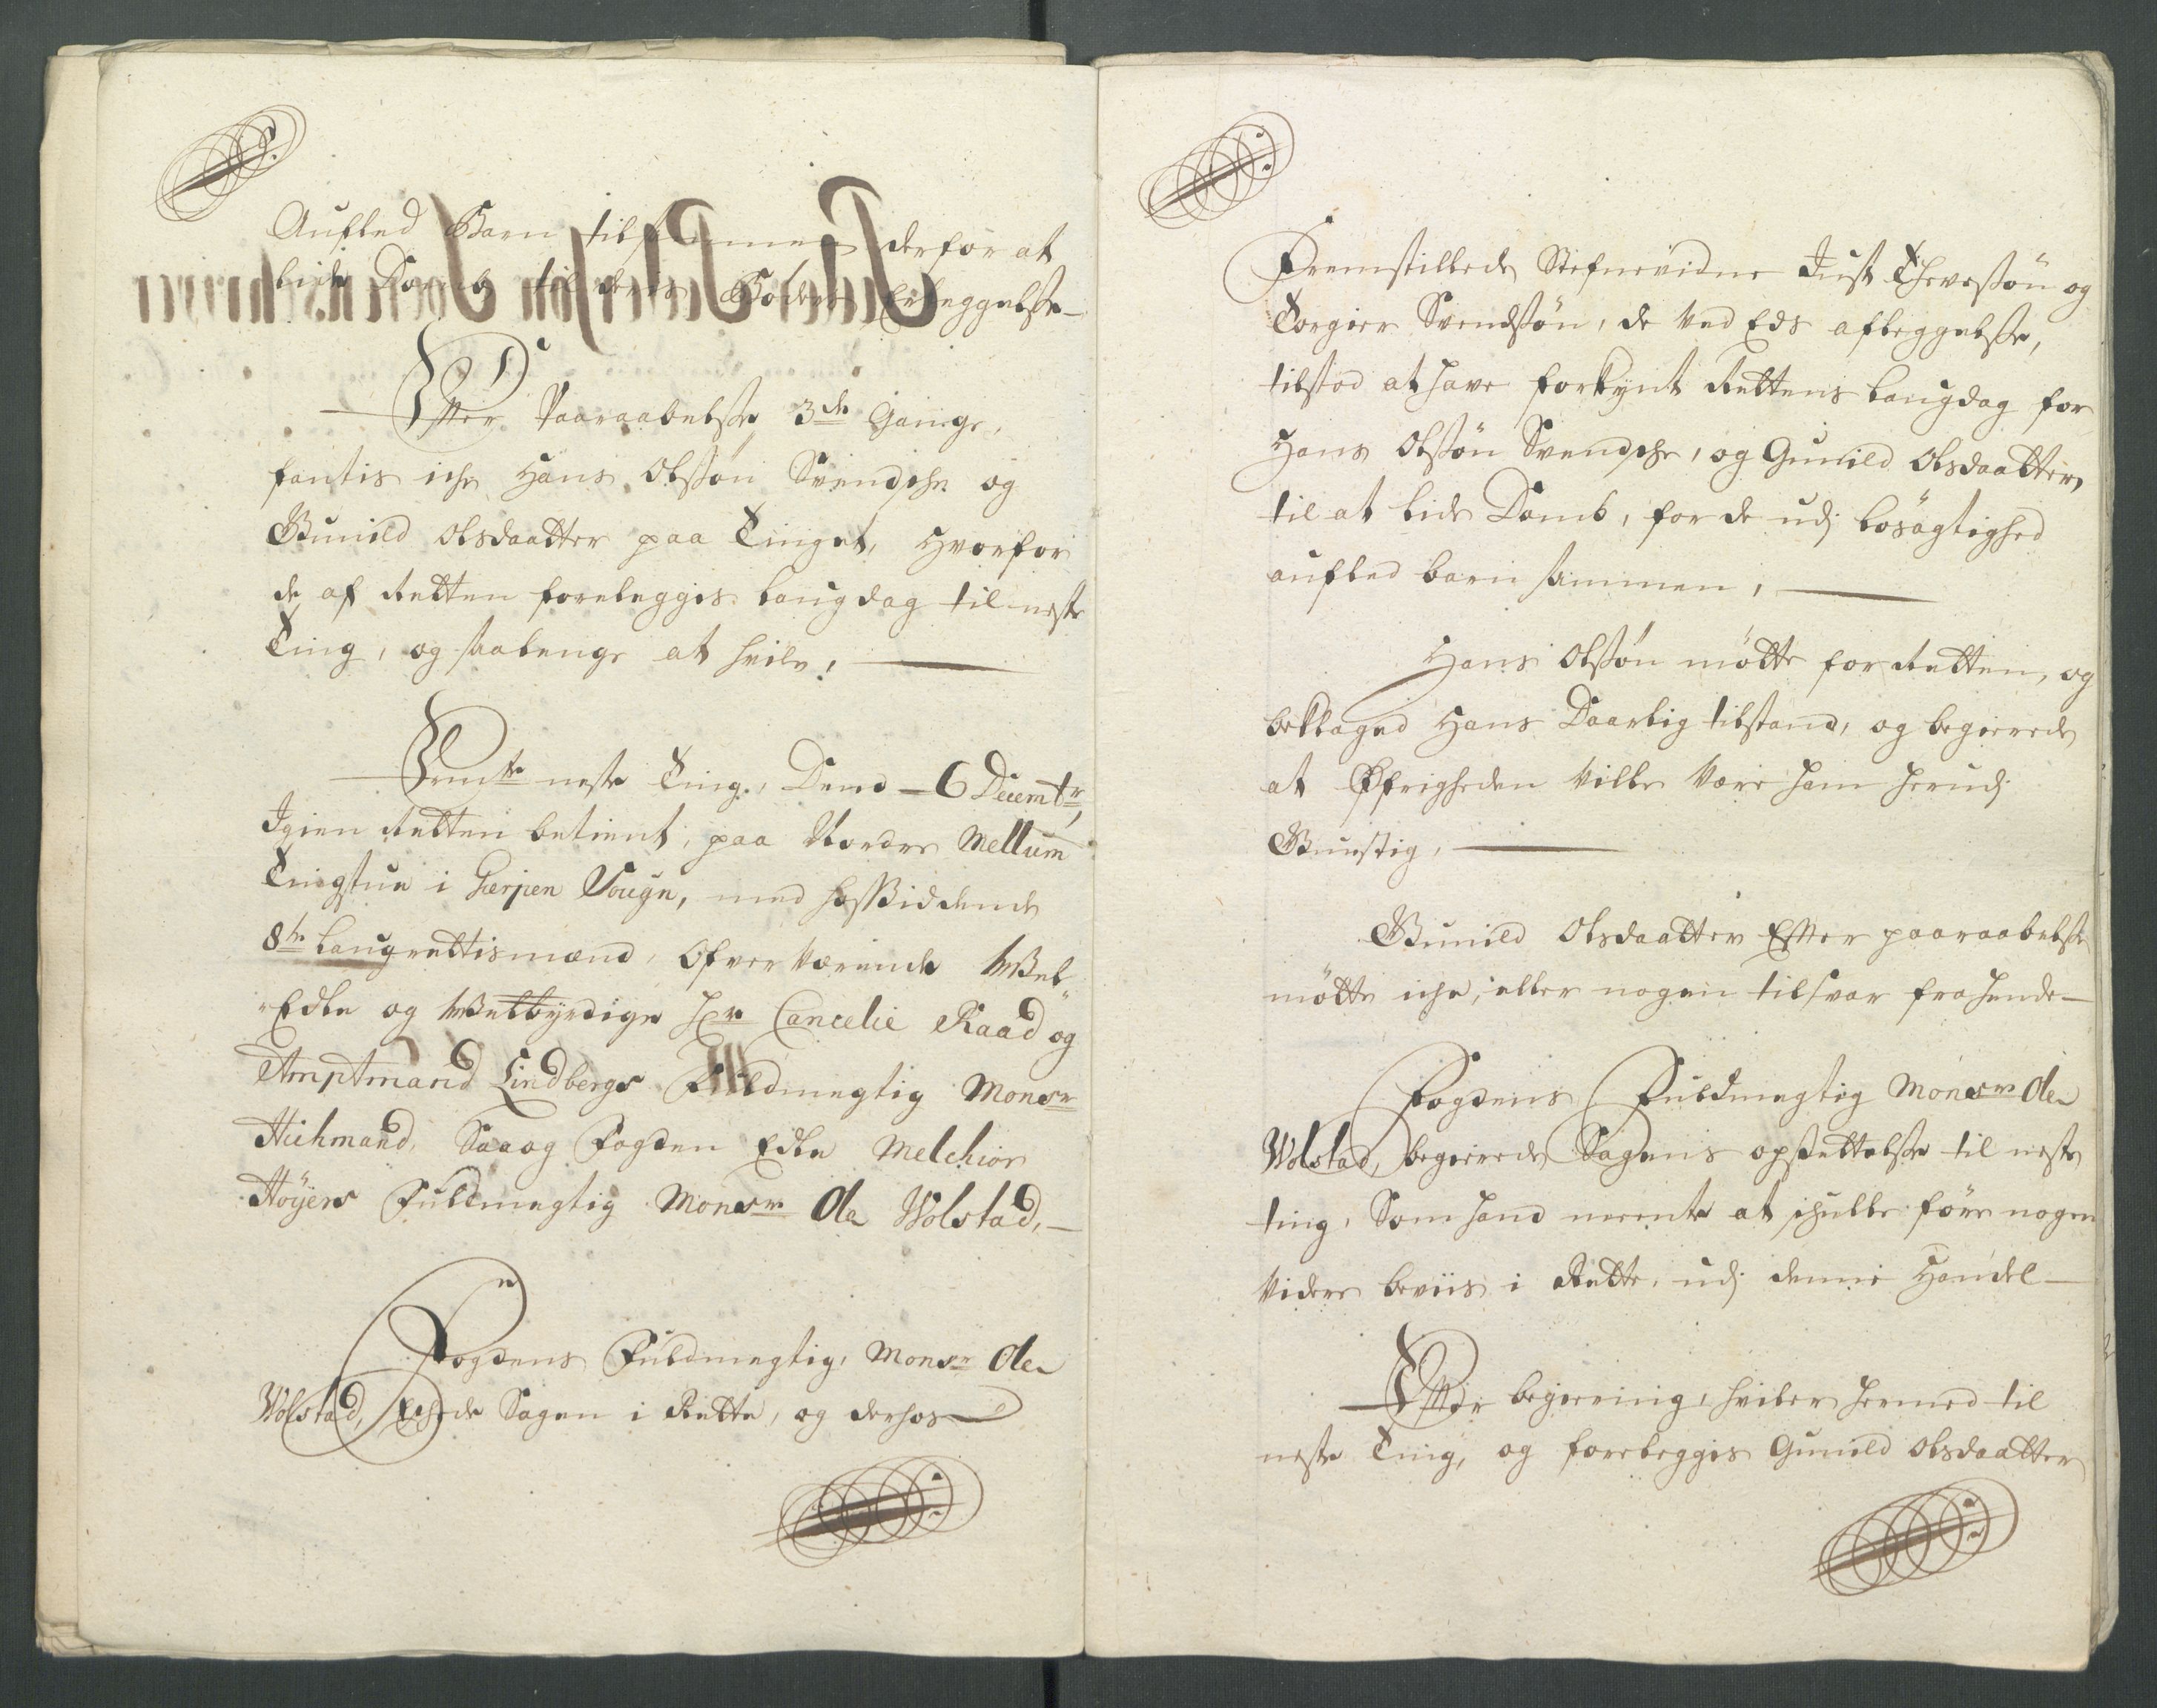 Aufled Barn tilsammen derfor at
lide Domb til deres Böders Erleggelse
Effter Paaraabelse 3de Gange,
fantis iche Hans Olssøn Svendsche og
Gunild Olsdaatter paa Tinget, Hvorfor
de af Retten foreleggis Laugdag til neste
Ting, og saalenge at hvile,
neste Ting, Dend 6 Decembr,
Igien Retten betient, paa Nordre Mellum
Tingstue i Gierpen Sougn, med hossiddende
8te Laugrettismænd, Ofververende Wel-
Edle og Welbyrdige Hr Cancelie Raad og
Amptmand Lindbergs Fuldmegtig Monsr
Hichmand, Saa og Fogden Edle Melchior
Höÿers Fuldmegtig Monsr de Wolstad,
Fogdens Fuldmegtig, Monsr de
Wolstad, Eschede Sagen i Rette, og derhos
Fremstillede Stefnevidne Just Theressön og
Torgier Svendssön, de ved Eds afleggelse,
tilstod at have forkynt Rettens Laugdag for
Hans Olssön Svendsche, og Gunild Olsdaatter,
til at lide Domb, for de udj Losagtighed
aufled barn sammen,
Hans Olssön mötte for Retten, og
beklaged Hans Daarlig tilstand, og begierede
at Øfrigheden ville være ham herudj
Gunstig,
Gunild Olsdaatter Effter paaraabelse
mötte iche, eller nogen tilsvar fra hende
Fogdens Fuldmegtig Monsr de
Wolstad, begierede Sagens opsettelse til neste
ting, Som hand meente at schulle före nogen
videre beviis i Rette, udj denne Handel
Effter begiering, hviler hermed til
neste Ting, og foreleggis Gunild Olsdaatter